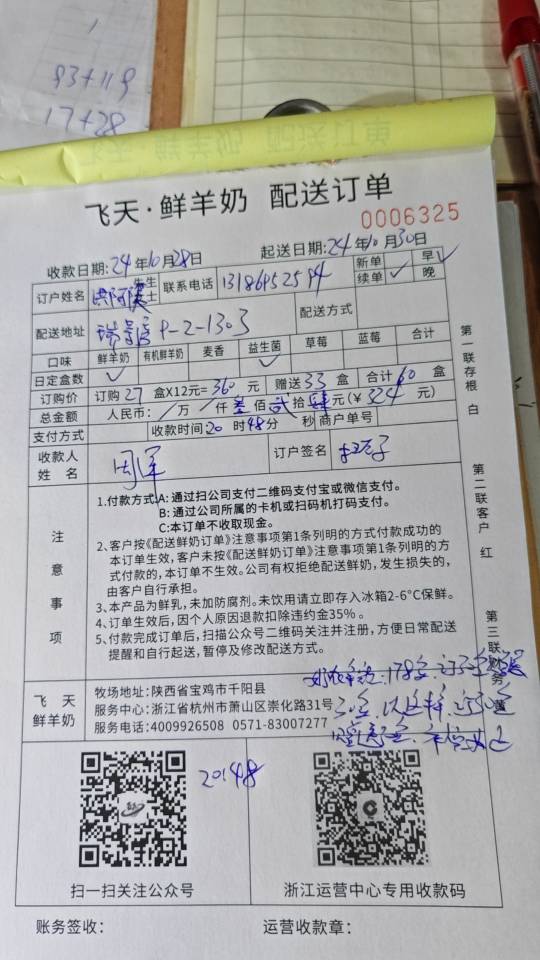 93+119
17+28
飞天·鲜羊奶 配送订单
0006325
收款日期:24年10月28日 起送日期:24年10月30日
订户姓名 先生 女士 联系电话 新单 续单 ✓ 早 ✓ 晚
配送地址 9-2-1303 配送方式
口味 鲜羊奶 有机鲜羊奶 麦香 益生菌 草莓 蓝莓 合计
日定盒数 ✓ ✓
订购价 订购27盒X12元=360元 赠送33盒 合计60盒
总金额 人民币: 万 仟叁佰贰拾肆元(¥324元)
支付方式 收款时间:20时48分 秒 商户单号
收款人姓名 周军 订户签名
注意事项
1.付款方式A:通过扫公司支付二维码支付宝或微信支付。
B:通过公司所属的卡机或扫码机打码支付。
C:本订单不收取现金。
2、客户按《配送鲜奶订单》注意事项第1条列明的方式付款成功的
本订单生效,客户未按《配送鲜奶订单》注意事项第1条列明的方
式付款的,本订单不生效。公司有权拒绝配送鲜奶,发生损失的,
由客户自行承担。
3、本产品为鲜乳,未加防腐剂。未饮用请立即存入冰箱2-6°C保鲜。
4、订单生效后,因个人原因退款扣除违约金35%。
5、付款完成订单后,扫描公众号二维码关注并注册,方便日常配送
提醒和自行起送,暂停及修改配送方式。
第一联存根 白
第二联客户 红
第三联财务 黄
飞天鲜羊奶
牧场地址:陕西省宝鸡市千阳县
服务中心:浙江省杭州市萧山区崇化路31号
服务电话:4009926508 0571-83007277
20148
扫一扫关注公众号
浙江运营中心专用收款码
账务签收: 运营收款章: